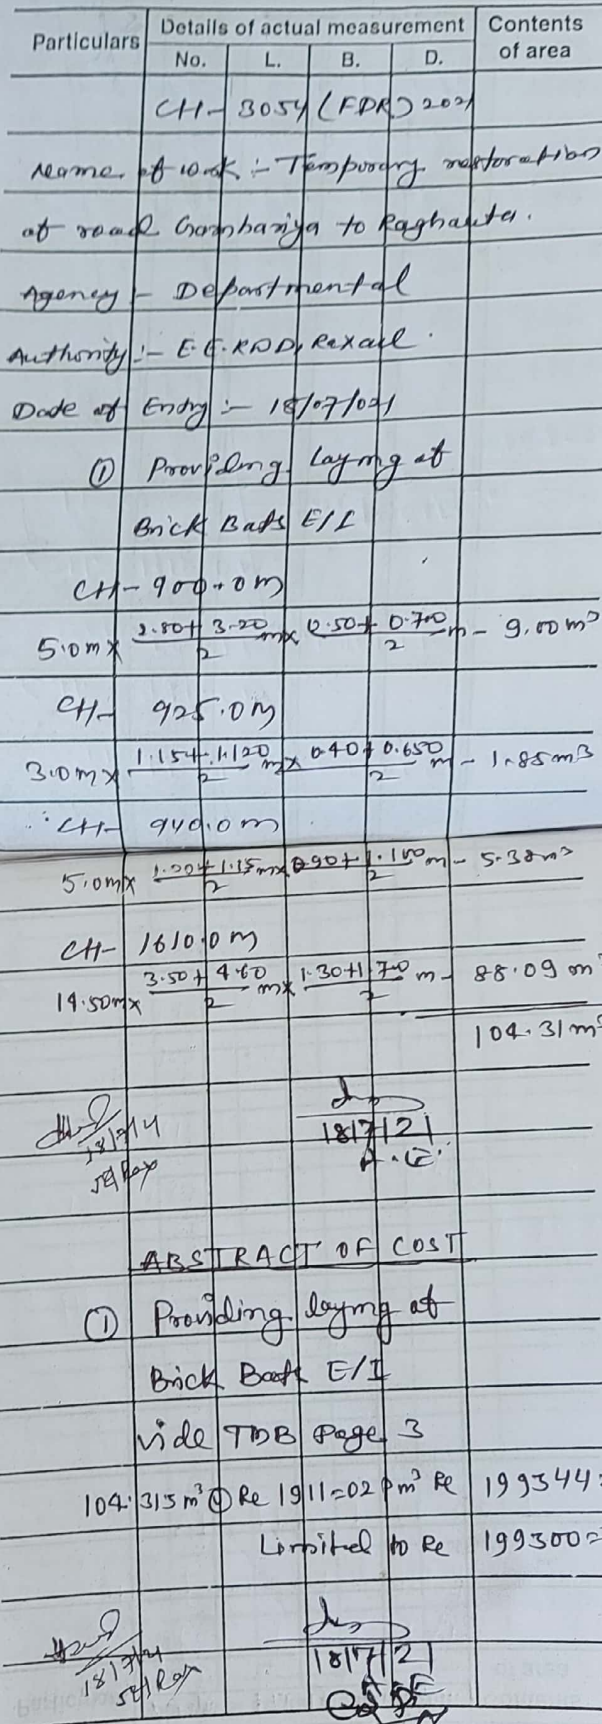 Particulars Details of actual measurement Contents of area
No. L. B. D.
CH- 3054 (FDR) 2021
Name of work :- Temporary restoration
of road Gambhariya to Raghauta.
Agency - Departmental
Authority :- E.E. RWD, Raxaul.
Date of Entry :- 18/07/021
① Providing laying of
Brick Bats E/I
CH- 900.0m
5.0m x 2.80+3.20/2 m x 0.50+0.700/2 m - 9.00 m³
CH- 925.0m
3.0m x 1.15+1.120/2 m x 0.40+0.650/2 m - 1.85m³
CH- 940.0m
5.0m x 1.00+1.15/2 m x 0.90+1.100/2 m - 5.38m³
CH- 1610.0m
14.50m x 3.50+4.60/2 m x 1.30+1.70/2 m - 88.09 m³
104.31 m³
18/7/21
18/7/21
A.E.
ABSTRACT OF COST
① Providing laying of
Brick Batt E/I
vide TMB Page 3
104.315 m³ @ Re 1911=02 P m³ Re 199344=
Limited to Re 199300=
18/7/21
18/7/21